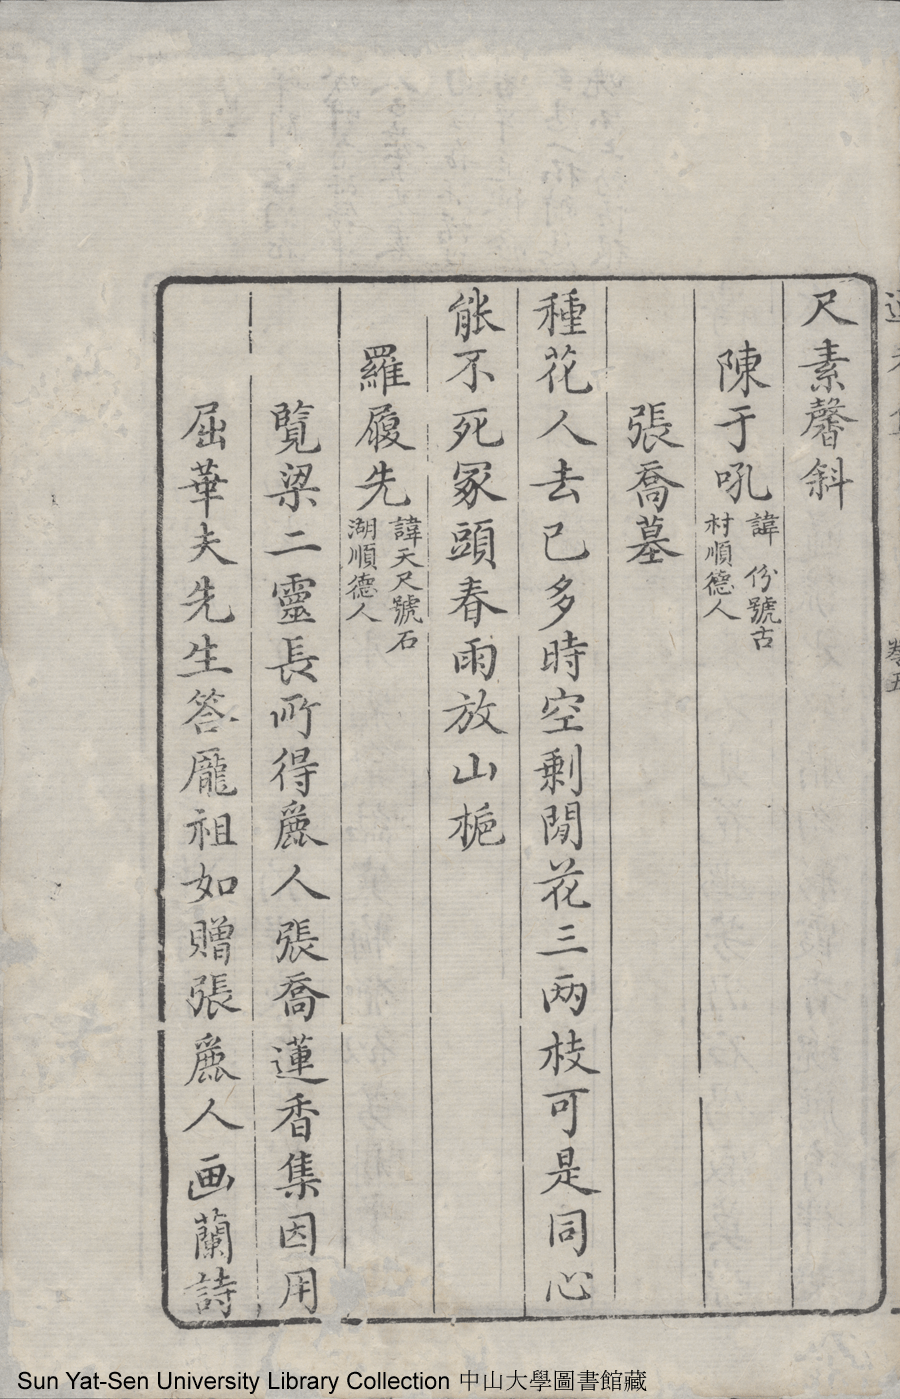 尺素馨斜
陳于吼 諱 份號古
村順德人
張喬墓
種花人去已多時空剩閒花三两枝可是同心
能不死冢頭春雨放山梔
羅履先 諱天尺號石
湖順德人
覽梁二靈長所得麁人張喬蓮香集因用
屈華夫先生答龐祖如贈張麁人画蘭詩
卷五
Sun Yat-Sen University Library Collection 中山大學圖書館藏